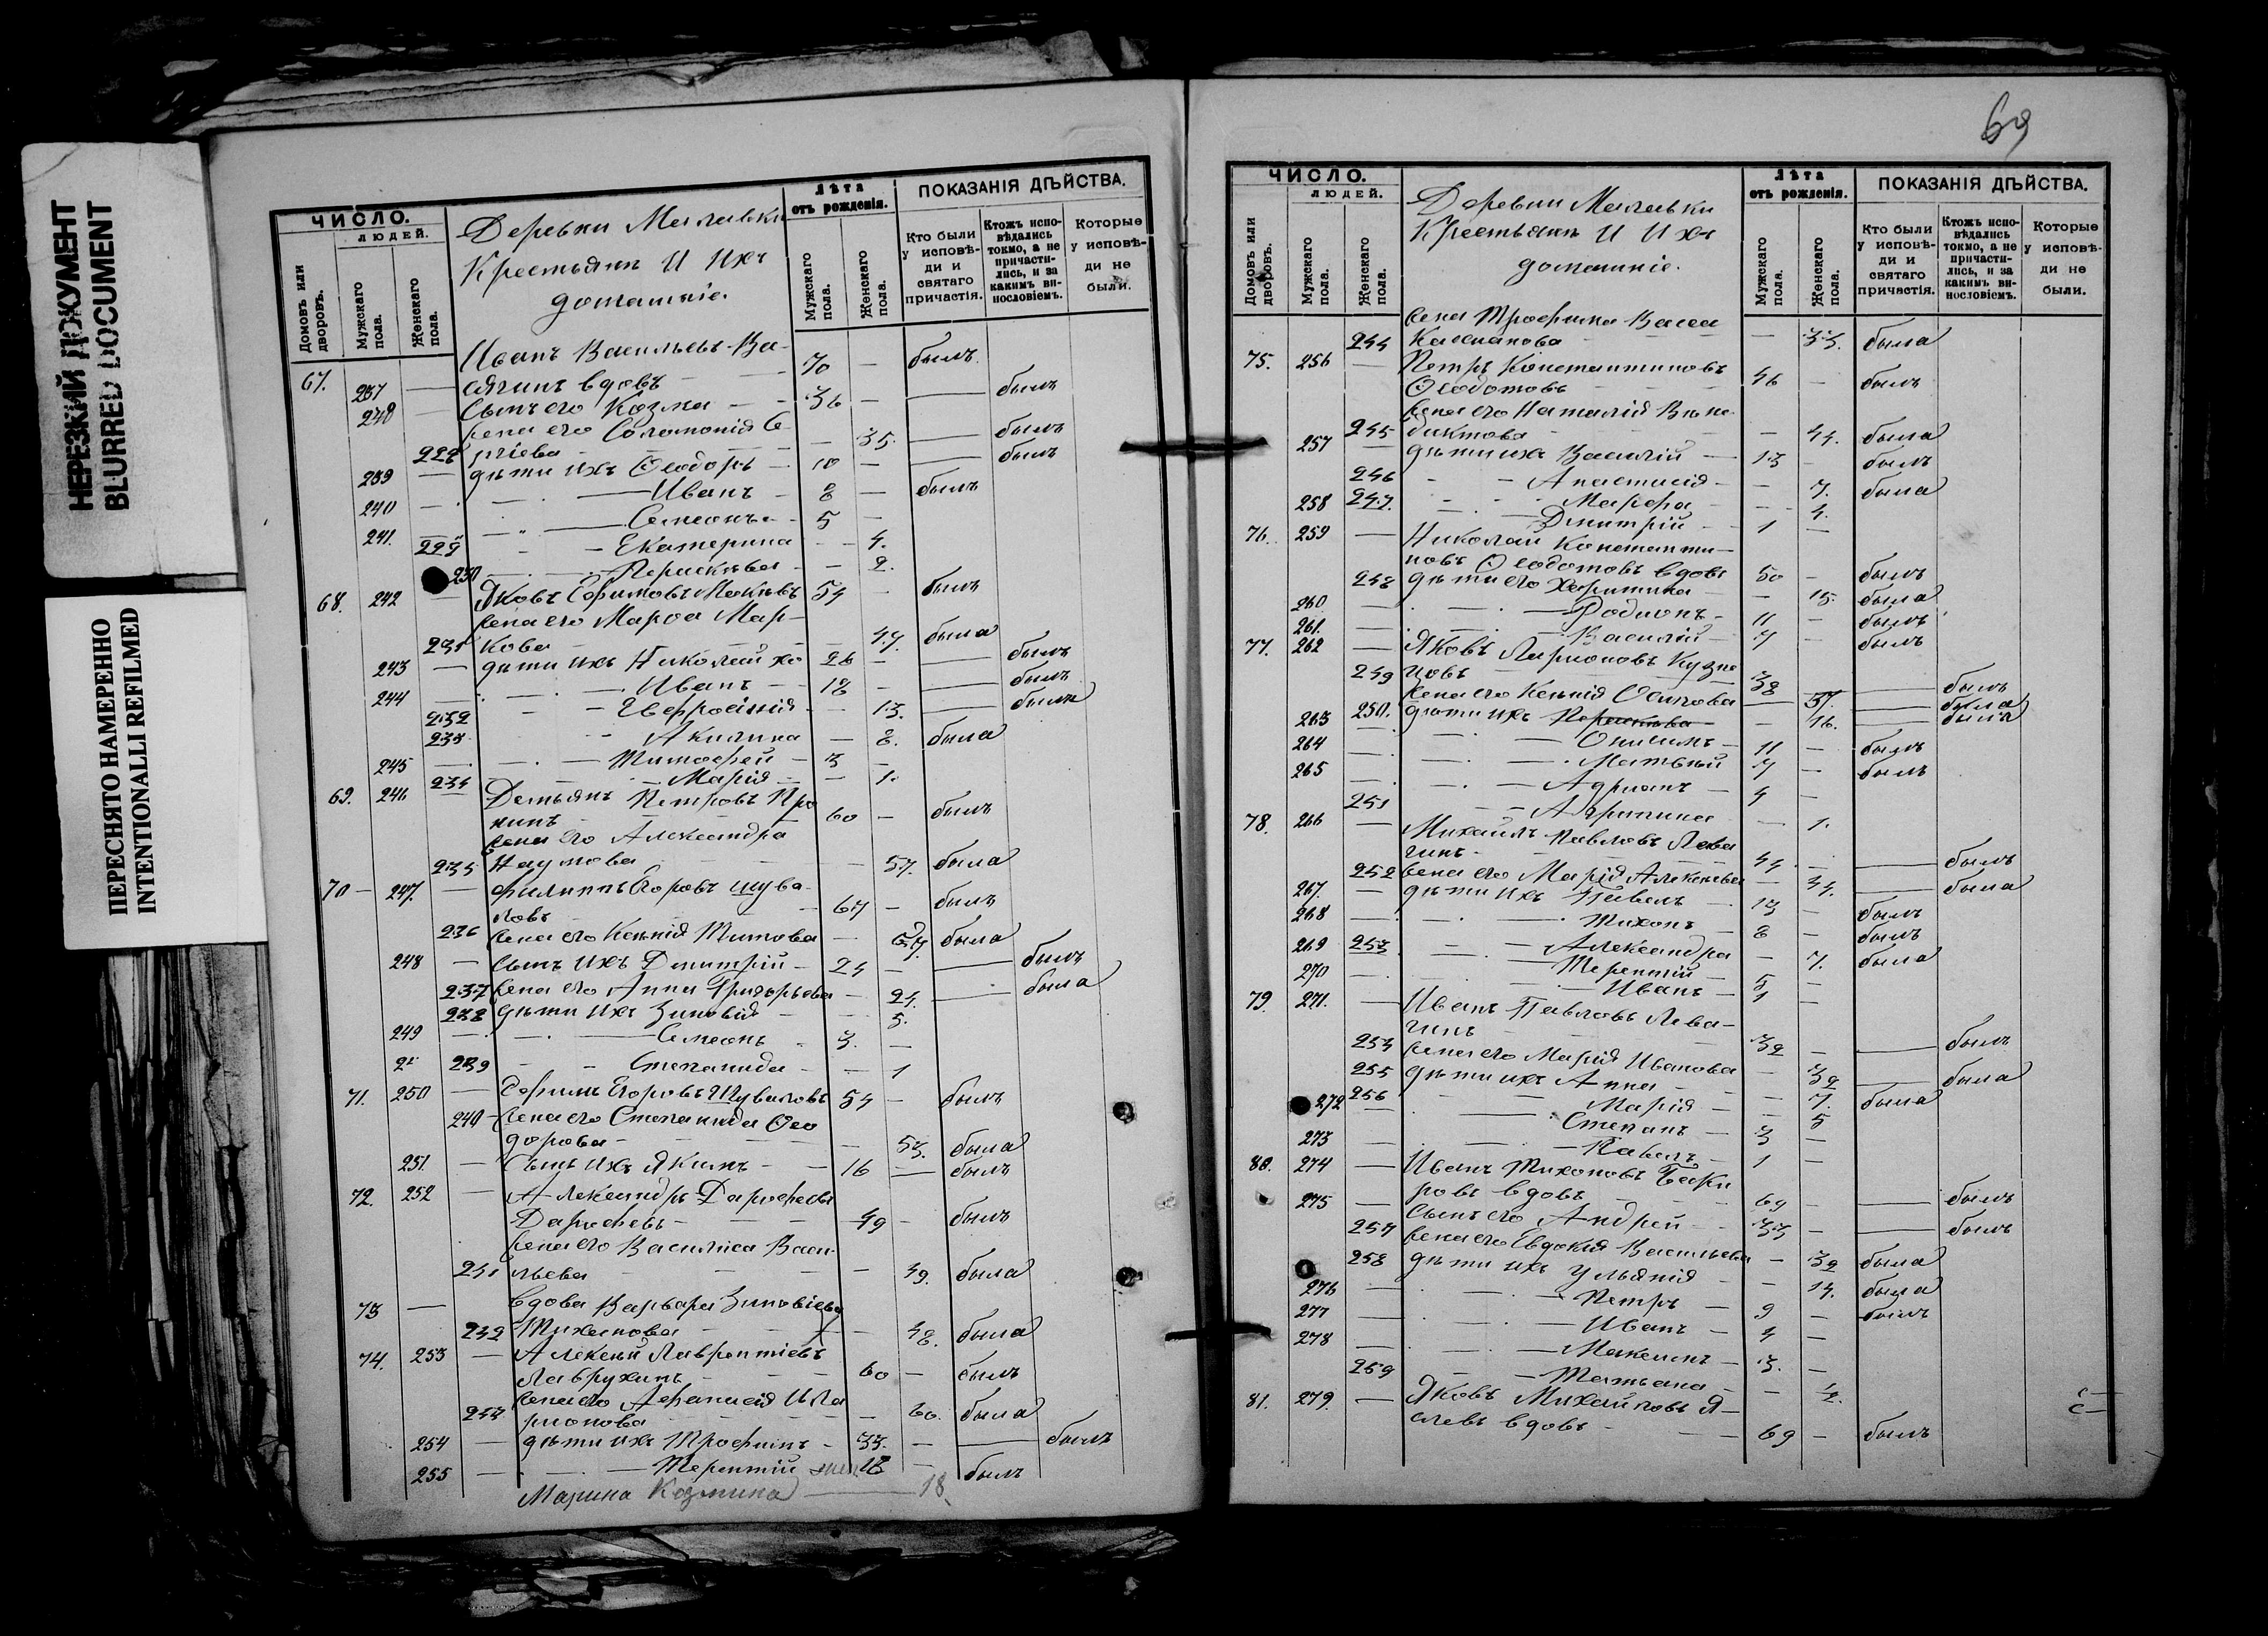 НЕРЕЗКИЙ ДОКУМЕНТ
BLURRED DOCUMENT
ПЕРЕСНЯТО НАМЕРЕННО
INTENTIONALLI REFILMED
ЧИСЛО.
ЛЮДЕЙ.
Домовъ или дворовъ.
Мужскаго пола.
Женскаго пола.
Деревни
Крестьянъ И Ихъ
домашніе.
Лѣта
отъ рожденія.
Мужскаго пола.
Женскаго пола.
ПОКАЗАНІЯ ДѢЙСТВА.
Кто были у исповѣ-ди и святаго причастія.
Ктожъ испо-вѣдались токмо, а не причасти-лись, и за какимъ ви-нословіемъ.
Которые у исповѣ-ди не были.
67. 237 — Иванъ Васильевъ Ва-
сягинъ вдовъ 70 — былъ
238 — Сынъ его Козма 36 — — былъ
Жена его Соломонія Се-
228 ргіева — 35. — былъ
239 — дѣти ихъ Ѳеодоръ 10 — — былъ
240 — Иванъ 8 — былъ
241. — Семеонъ 5 —
229 Екатерина — 4.
230 Параскева — 2.
68. 242 — Яковъ Ефимовъ 54 — былъ
Жена его Марѳа Мар-
231 кова — 47. была
243 — дѣти ихъ Николай хо 26 — — былъ
244 — Иванъ 18 — — былъ
232 Евфросинія — 13. — была
233 Акилина — 8. была
245 — Тимофей 3 —
234 Марія — 1.
69. 246 Демьянъ Петровъ Про
нинъ 60 — былъ
жена его Александра
235 Наумова — 57. была
70 — 247. — Филиппъ Егоровъ Шува-
ловъ 67 — былъ
236 Жена его Ксенія Титова — 67. была
248 — Сынъ ихъ Димитрій 24 — — былъ
237 Жена его Анна Григорьева — 24. — была
238 дѣти ихъ Зиновія — 5.
249 — Семеонъ 3. —
239 Степанида — 1
71. 250 — Ефимъ Егоровъ Шуваловъ 54 — былъ
240 Жена его Степанида Ѳео
дорова — 53. была
251. — Сынъ ихъ Якимъ 16 — былъ
72. 252 — Александръ Дарофеевъ
Дарофеевъ 49 — былъ
Жена его Василиса Васи-
241 льева — 49. была
73 — Вдова Варвара Зиновіева
242 — 48. была
74. 253 — Алексѣй Лаврентіевъ
Лаврухинъ 60 — былъ
Жена его Афанасія Ила
243 ріонова — 60. была
254 — дѣти ихъ Трофимъ 33. — — былъ
255 — Терентій 18 — былъ
Марина Козмина — 18.
69
ЧИСЛО.
ЛЮДЕЙ.
Домовъ или дворовъ.
Мужскаго пола.
Женскаго пола.
Деревни
Крестьянъ И Ихъ
домашніе.
Лѣта
отъ рожденія.
Мужскаго пола.
Женскаго пола.
ПОКАЗАНІЯ ДѢЙСТВА.
Кто были у исповѣ-ди и святаго причастія.
Ктожъ испо-вѣдались токмо, а не причасти-лись, и за какимъ ви-нословіемъ.
Которые у исповѣ-ди не были.
жена Трофима Васса
244 — 33. была
75. 256 — Петръ Константиновъ
Ѳеодотовъ 46 — былъ
Жена его Наталія Вене-
245 диктова — 44. была
257 — дѣти ихъ Василій 13 — былъ
246 Анастасія — 7. была
247. Марфа — 4.
258 Димитрій 1 —
76. 259 — Николай Константи-
новъ Ѳеодотовъ вдовъ 50 — былъ
248 дѣти его Харитина — 15. была
260 — Родионъ 11 — былъ
261. — Василій 7 — былъ
77. 262 — Яковъ Ларіоновъ Кузне
цовъ 38 — былъ
249 Жена его Ксенія Осипова — 37. — была
250. дѣти ихъ Параскева — 16. — была
263 — Онисимъ 11 — былъ
264 — Матвѣй 7 — былъ
265 — Адрианъ 4 —
251 Агрипина — 1.
78. 266 — Михаилъ Павловъ Лева
гинъ 44 — — былъ
252 Жена его Марія Алексѣева — 34. — была
267. — дѣти ихъ Павелъ 13 — былъ
268 — Тихонъ 8 — былъ
253 Александра — 7. была
269 — Терентій 5 —
270 — Иванъ 1 —
79. 271. — Иванъ Павловъ Лева-
гинъ 32 — — былъ
254 Жена его Марія Иванова — 32 — была
255 дѣти ихъ Анна — 7. была
256 Марія — 5
272 — Степанъ 3 —
273 — Павелъ 1 —
80. 274 — Иванъ Тихоновъ
вдовъ 69 — — былъ
275 — Сынъ его Андрей 33 — — былъ
257 Жена его Евдокія Васильева — 32 была
258 дѣти ихъ Ульянія — 14. была
276 — Петръ 9 — былъ
277 — Иванъ 4 —
278 — Максимъ 3. —
259 Татьяна —
81. 279. — Яковъ Михайловъ
вдовъ 69 — былъ